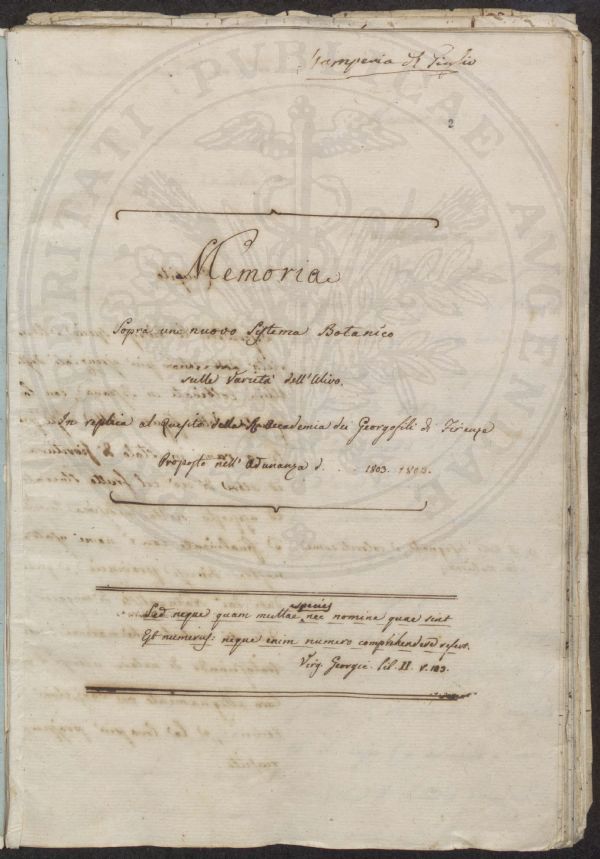 di
2
Memoria
Sopra un nuovo Sistema Botanico
sulle Varietà dell'Ulivo.
In replica al Quesito della R. Accademia dei Georgofili di Firenze
Proposto nell'Adunanza d. . . 1803. 1803.
species
Sed neque quam multae nec nomina quae sint
Est numerus: neque enim numero comprehendere refert.
Virg. Georgic lib. II. v. 103.
PROSPERITATI PUBLICAE AUGENDAE